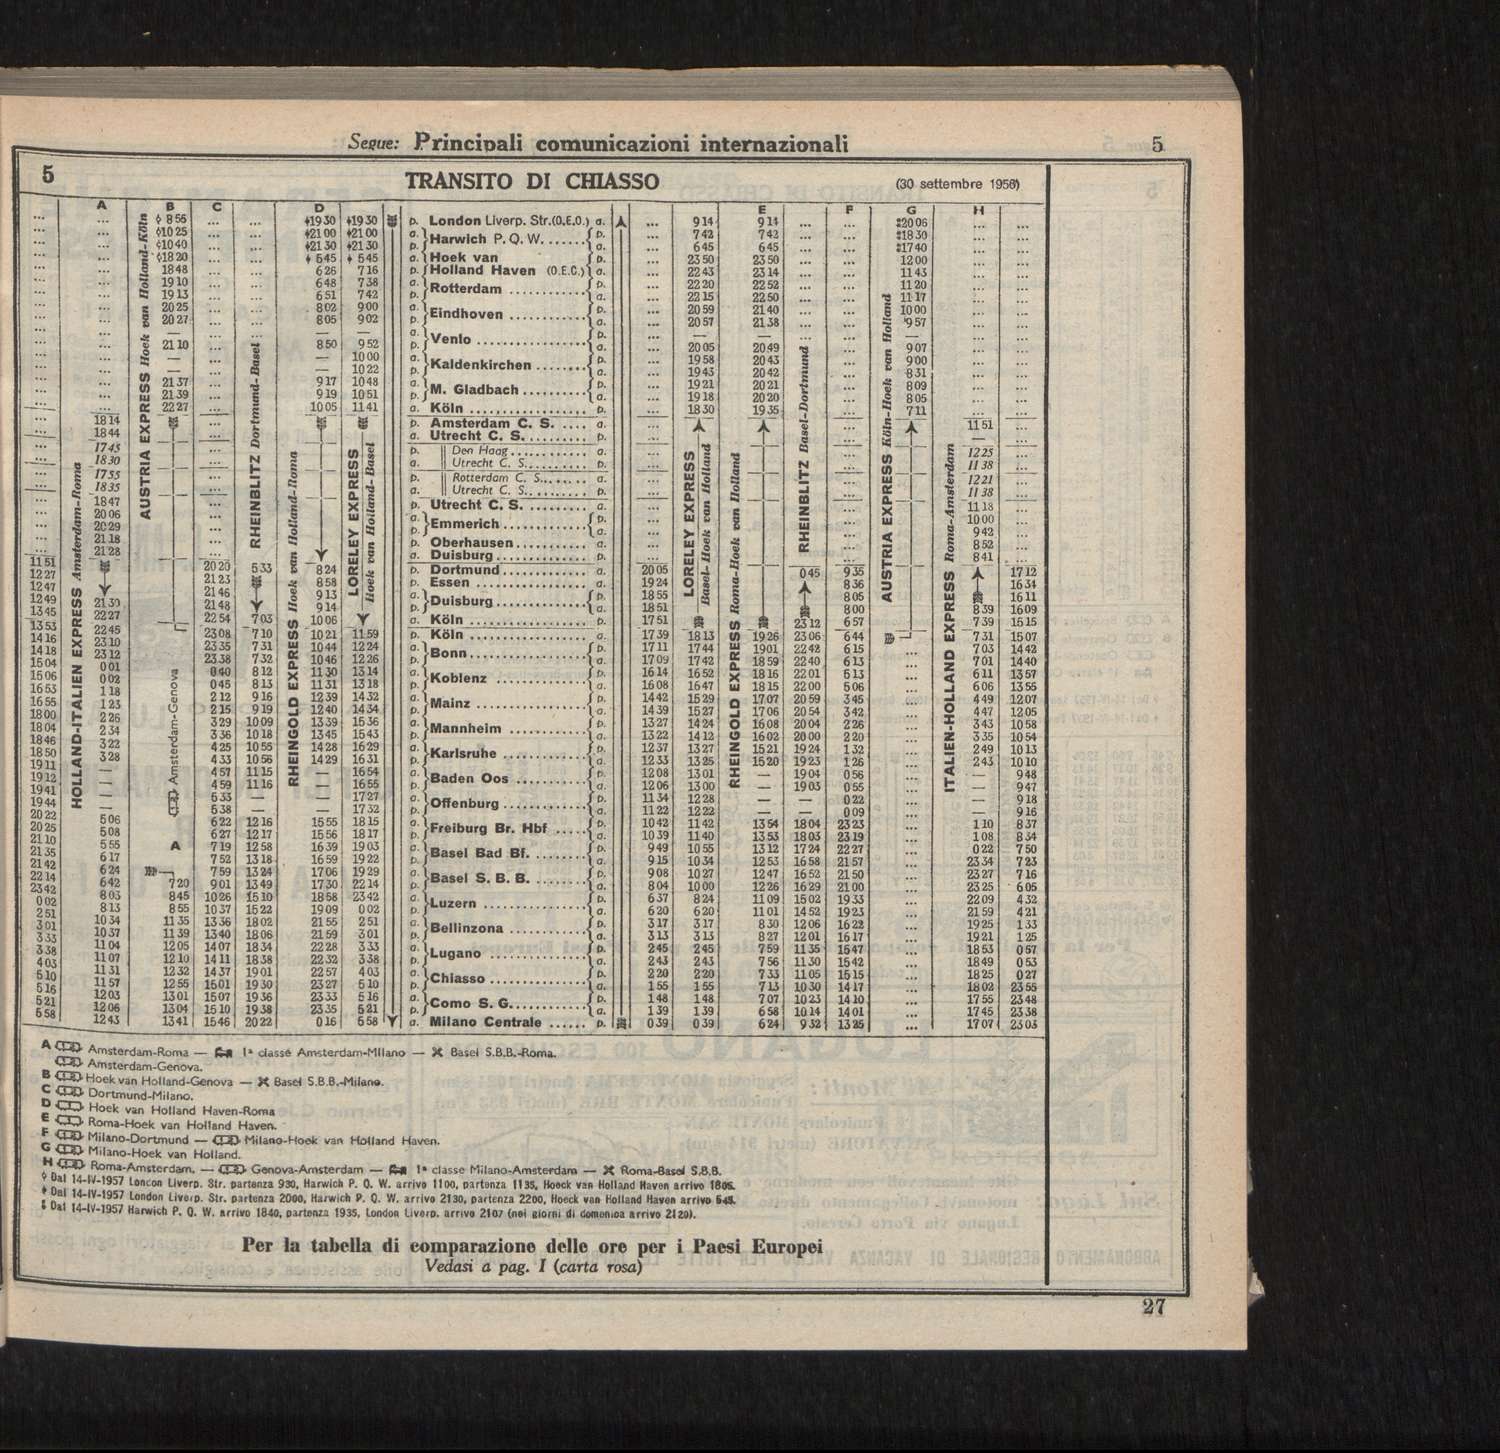 Segue: Principali comunicazioni internazionali 5
5 TRANSITO DI CHIASSO (30 settembre 1956)
A B C D E F G H
... ... ◊ 8 55 ... ... 19 30 19 30 p. London Liverp. Str.(O.E.O.) a. ... 9 14 9 14 ... ... 20 06 ... ...
... ... 10 25 ... ... 21 00 21 00 a. Harwich P. Q. W. p. ... 7 42 7 42 ... ... 18 30 ... ...
... ... 10 40 ... ... 21 30 21 30 p. a. ... 6 45 6 45 ... ... 17 40 ... ...
... ... 18 20 ... ... 5 45 5 45 a. Hoek van p. ... 23 50 23 50 ... ... 12 00 ... ...
... ... 18 48 ... ... 6 26 7 16 p. Holland Haven (O.E.C.) a. ... 22 43 23 14 ... ... 11 43 ... ...
... ... 19 10 ... ... 6 48 7 38 a. Rotterdam p. ... 22 20 22 52 ... ... 11 20 ... ...
... ... 19 13 ... ... 6 51 7 42 p. a. ... 22 15 22 50 ... ... 11 17 ... ...
... ... 20 25 ... ... 8 02 9 00 a. Eindhoven p. ... 20 59 21 40 ... ... 10 00 ... ...
... ... 20 27 ... ... 8 05 9 02 p. a. ... 20 57 21 38 ... ... 9 57 ... ...
... ... — ... ... — — a. Venlo p. ... — — ... ... — ... ...
... ... 21 10 ... ... 8 50 9 52 p. a. ... 20 05 20 49 ... ... 9 07 ... ...
... ... — ... ... — 10 00 a. Kaldenkirchen p. ... 19 58 20 43 ... ... 9 00 ... ...
... ... — ... ... — 10 22 p. a. ... 19 43 20 42 ... ... 8 31 ... ...
... ... 21 37 ... ... 9 17 10 48 a. M. Gladbach p. ... 19 21 20 21 ... ... 8 09 ... ...
... ... 21 39 ... ... 9 19 10 51 p. a. ... 19 18 20 20 ... ... 8 05 ... ...
... ... 22 27 ... ... 10 05 11 41 a. Köln p. ... 18 30 19 35 ... ... 7 11 ... ...
... 18 14 ... p. Amsterdam C. S. a. ... ... 11 51 ...
... 18 44 ... a. Utrecht C. S. p. ... ... — ...
... 17 45 ... p. Den Haag a. ... ... 12 25 ...
... 18 30 ... a. Utrecht C. S. p. ... ... 11 38 ...
... 17 55 ... p. Rotterdam C. S. a. ... ... 12 21 ...
... 18 35 ... a. Utrecht C. S. p. ... ... 11 38 ...
... 18 47 ... p. Utrecht C. S. a. ... ... 11 18 ...
... 20 06 ... a. Emmerich p. ... ... 10 00 ...
... 20 29 ... p. a. ... ... 9 42 ...
... 21 18 ... p. Oberhausen a. ... ... 8 52 ...
... 21 28 ... a. Duisburg p. ... ... 8 41 ...
11 51 20 20 5 33 8 24 p. Dortmund a. 20 05 0 45 9 35 17 12
12 27 21 23 8 58 p. Essen a. 19 24 8 36 16 34
12 47 21 46 9 13 a. Duisburg p. 18 55 8 05 16 11
12 49 21 30 21 48 9 14 p. a. 18 51 8 00 8 39 16 09
13 45 22 27 22 54 7 03 10 06 a. Köln p. 17 51 23 12 6 57 7 39 15 15
13 53 22 45 23 08 7 10 10 21 11 59 p. Köln a. 17 39 18 13 19 26 23 06 6 44 7 31 15 07
14 16 23 10 23 35 7 31 10 44 12 24 a. Bonn p. 17 11 17 44 19 01 22 42 6 15 ... 7 03 14 42
14 18 23 12 23 38 7 32 10 46 12 26 p. a. 17 09 17 42 18 59 22 40 6 13 ... 7 01 14 40
15 04 0 01 0 40 8 12 11 30 13 14 a. Koblenz p. 16 14 16 52 18 16 22 01 5 13 ... 6 11 13 57
15 06 0 02 0 45 8 13 11 31 13 18 p. a. 16 08 16 47 18 15 22 00 5 06 ... 6 06 13 55
16 53 1 18 2 12 9 16 12 39 14 32 a. Mainz p. 14 42 15 29 17 07 20 59 3 45 ... 4 49 12 07
16 55 1 23 2 15 9 19 12 40 14 34 p. a. 14 39 15 27 17 06 20 54 3 42 ... 4 47 12 05
18 00 2 26 3 29 10 09 13 39 15 36 a. Mannheim p. 13 27 14 24 16 08 20 04 2 26 ... 3 43 10 58
18 04 2 34 3 36 10 18 13 45 15 43 p. a. 13 22 14 12 16 02 20 00 2 20 ... 3 35 10 54
18 46 3 22 4 25 10 55 14 28 16 29 a. Karlsruhe p. 12 37 13 27 15 21 19 24 1 32 ... 2 49 10 13
18 50 3 28 4 33 10 56 14 29 16 31 p. a. 12 33 13 25 15 20 19 23 1 26 ... 2 43 10 10
19 11 — 4 57 11 15 — 16 54 a. Baden Oos p. 12 08 13 01 — 19 04 0 56 ... — 9 48
19 12 — 4 59 11 16 — 16 55 p. a. 12 06 13 00 — 19 03 0 55 ... — 9 47
19 41 — 5 33 — — 17 27 a. Offenburg p. 11 34 12 28 — — 0 22 ... — 9 18
19 44 — 5 38 — — 17 32 p. a. 11 22 12 22 — — 0 09 ... — 9 16
20 22 5 06 6 22 12 16 15 55 18 15 a. Freiburg Br. Hbf p. 10 42 11 42 13 54 18 04 23 23 ... 1 10 8 37
20 25 5 08 6 27 12 17 15 56 18 17 p. a. 10 39 11 40 13 53 18 03 23 19 ... 1 08 8 34
21 10 5 55 A 7 19 12 58 16 39 19 03 a. Basel Bad Bf. p. 9 49 10 55 13 12 17 24 22 27 ... 0 22 7 50
21 35 6 17 7 52 13 18 16 59 19 22 p. a. 9 15 10 34 12 53 16 58 21 57 ... 23 34 7 23
21 42 6 24 7 59 13 24 17 06 19 29 a. Basel S. B. B. p. 9 08 10 27 12 47 16 52 21 50 ... 23 27 7 16
22 14 6 42 7 20 9 01 13 49 17 30 22 14 p. a. 8 04 10 00 12 26 16 29 21 00 ... 23 25 6 05
23 42 8 03 8 45 10 26 15 10 18 58 23 42 a. Luzern p. 6 37 8 24 11 09 15 02 19 33 ... 22 09 4 32
0 02 8 13 8 55 10 37 15 22 19 09 0 02 p. a. 6 20 6 20 11 01 14 52 19 23 ... 21 59 4 21
2 51 10 34 11 35 13 36 18 02 21 55 2 51 a. Bellinzona p. 3 17 3 17 8 30 12 06 16 22 ... 19 25 1 33
3 01 10 37 11 39 13 40 18 06 21 59 3 01 p. a. 3 13 3 13 8 27 12 01 16 17 ... 19 21 1 25
3 33 11 04 12 05 14 07 18 34 22 28 3 33 a. Lugano p. 2 45 2 45 7 59 11 35 16 47 ... 18 53 0 57
3 38 11 07 12 10 14 11 18 38 22 32 3 38 p. a. 2 43 2 43 7 56 11 30 15 42 ... 18 49 0 53
4 03 11 31 12 32 14 37 19 01 22 57 4 03 a. Chiasso p. 2 20 2 20 7 33 11 05 15 15 ... 18 25 0 27
5 10 11 57 12 55 15 01 19 30 23 27 5 10 p. a. 1 55 1 55 7 13 10 30 14 17 ... 18 02 23 55
5 16 12 03 13 01 15 07 19 36 23 33 5 16 a. Como S. G. p. 1 48 1 48 7 07 10 23 14 10 ... 17 55 23 48
5 21 12 06 13 04 15 10 19 38 23 35 5 21 p. a. 1 39 1 39 6 58 10 14 14 01 ... 17 45 23 38
5 58 12 43 13 41 15 46 20 22 0 16 5 58 a. Milano Centrale p. 0 39 0 39 6 24 9 32 13 25 ... 17 07 23 03
HOLLAND-ITALIEN EXPRESS Amsterdam-Roma
AUSTRIA EXPRESS Hoek van Holland-Köln
Amsterdam-Genova
RHEINBLITZ Dortmund-Basel
RHEINGOLD EXPRESS Hoek van Holland-Roma
LORELEY EXPRESS
Hoek van Holland-Basel
LORELEY EXPRESS
Basel-Hoek van Holland
RHEINGOLD EXPRESS Roma-Hoek van Holland
RHEINBLITZ Basel-Dortmund
AUSTRIA EXPRESS Köln-Hoek van Holland
ITALIEN-HOLLAND EXPRESS Roma-Amsterdam
A Amsterdam-Roma — 1ª classe Amsterdam-Milano — Basel S.B.B.-Roma.
Amsterdam-Genova.
B Hoek van Holland-Genova — Basel S.B.B.-Milano.
C Dortmund-Milano.
D Hoek van Holland Haven-Roma
E Roma-Hoek van Holland Haven.
F Milano-Dortmund — Milano-Hoek van Holland Haven.
G Milano-Hoek van Holland.
H Roma-Amsterdam. — Genova-Amsterdam — 1ª classe Milano-Amsterdam — Roma-Basel S.B.B.
◊ Dal 14-IV-1957 London Liverp. Str. partenza 930, Harwich P. Q. W. arrivo 1100, partenza 1135, Hoeck van Holland Haven arrivo 1805.
Dal 14-IV-1957 London Liverp. Str. partenza 2000, Harwich P. Q. W. arrivo 2130, partenza 2200, Hoeck van Holland Haven arrivo 545.
Dal 14-IV-1957 Harwich P. Q. W. arrivo 1840, partenza 1935, London Liverp. arrivo 2107 (nei giorni di domenica arrivo 2120).
Per la tabella di comparazione delle ore per i Paesi Europei
Vedasi a pag. I (carta rosa)
27